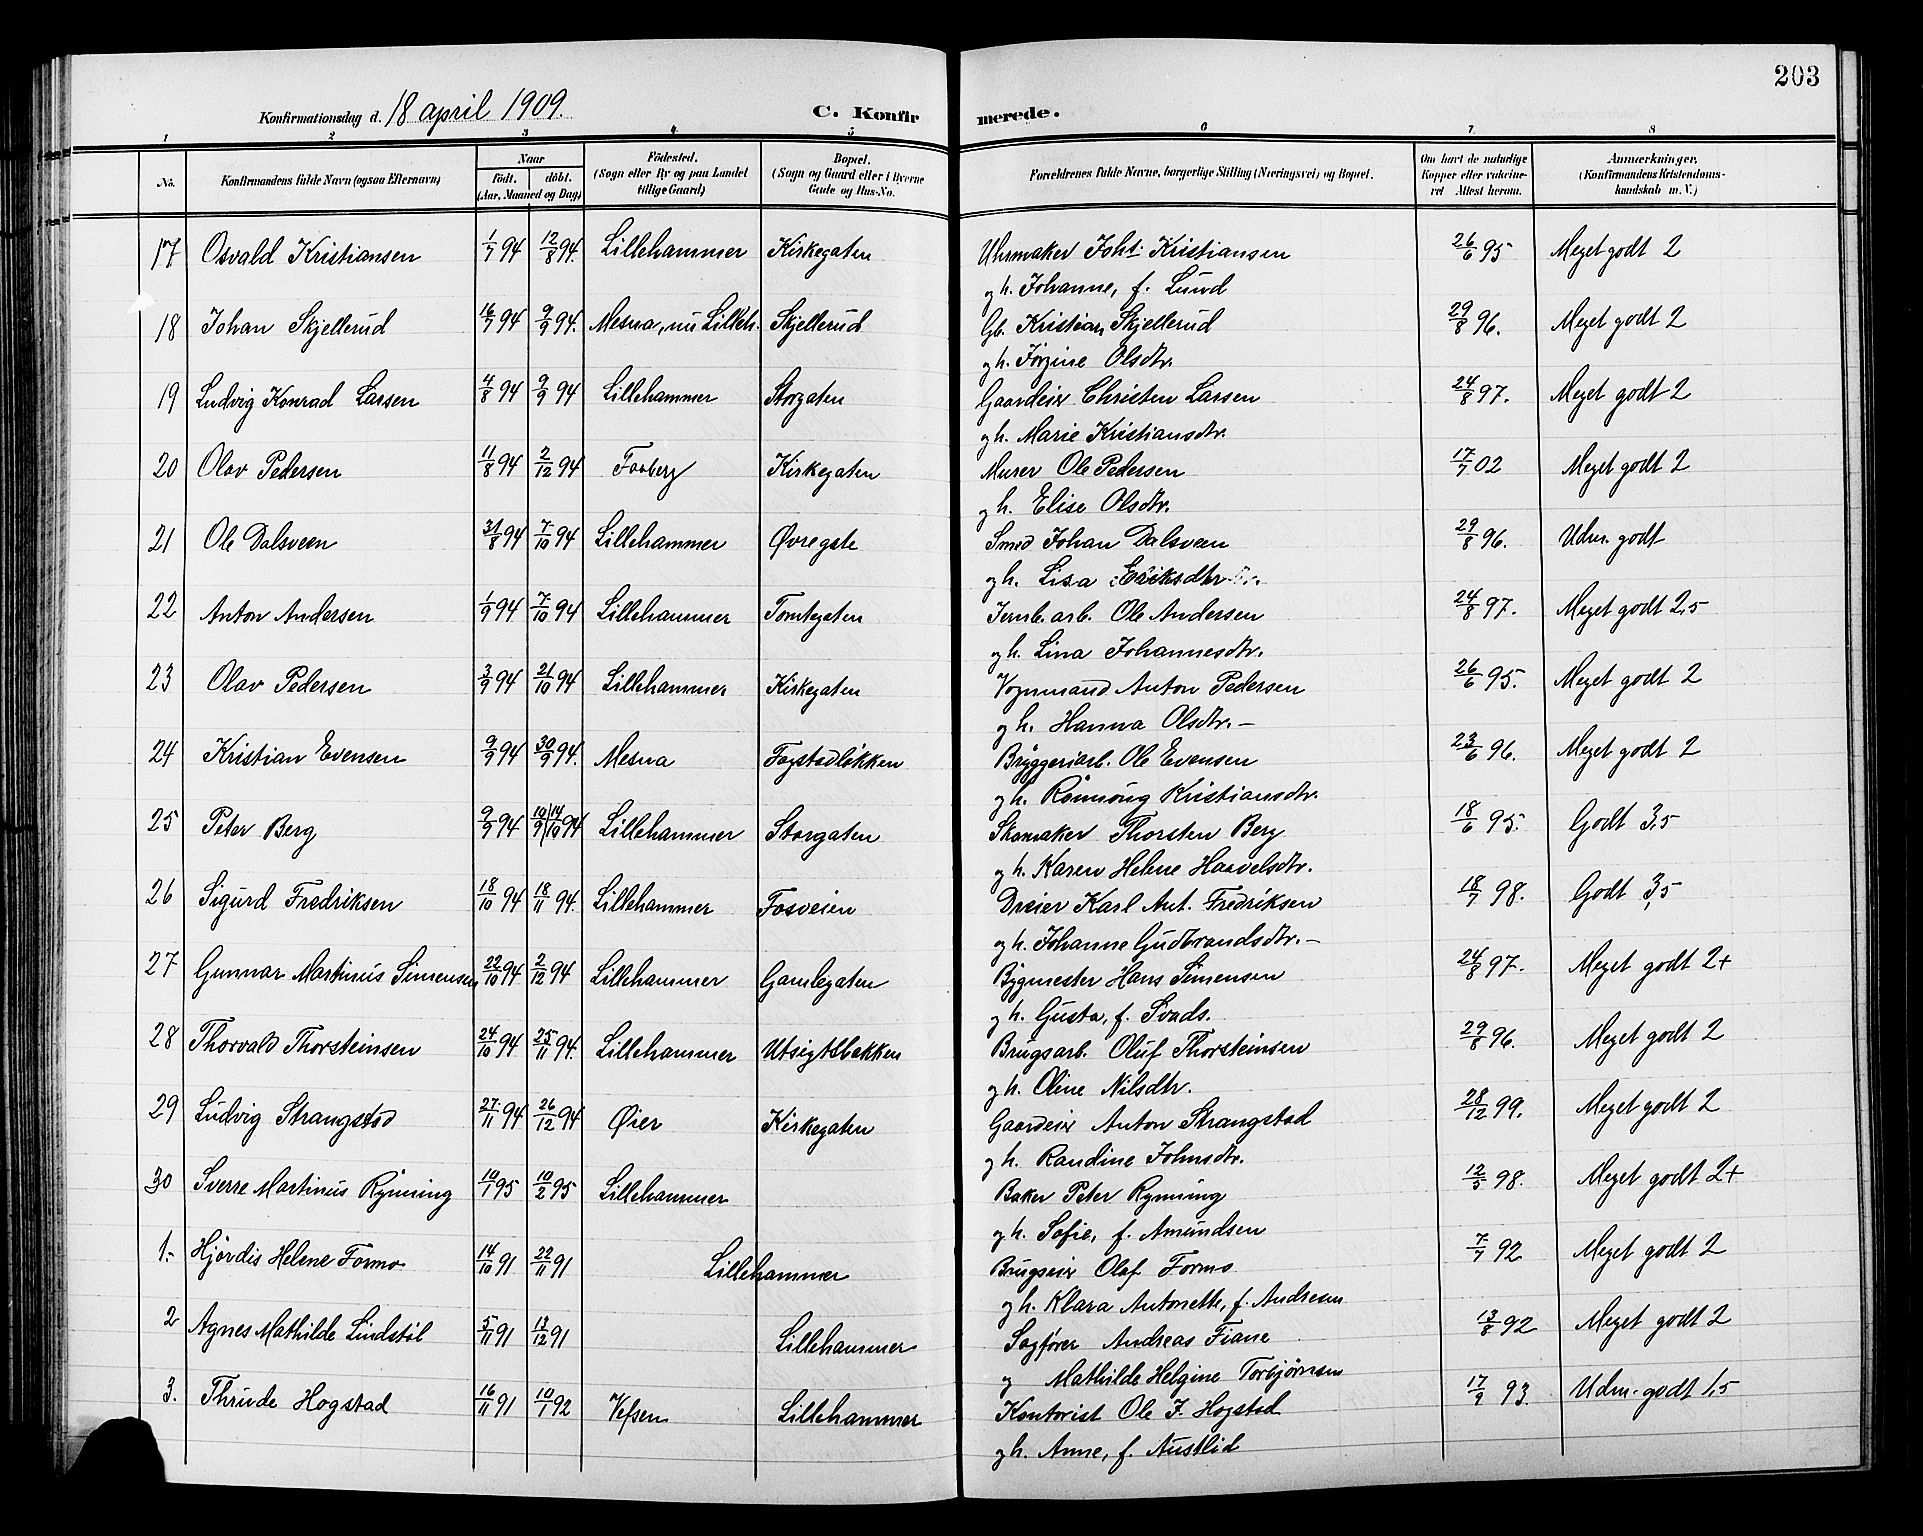 203
Konfirmationsdag d. 18 april 1909. C. Konfirmerede.
1 2 3 4 5 6 7 8
No. Konfirmandens fulde Navn (ogsaa Efternavn) Naar født. døbt. (Aar, Maaned og Dag) Födested. (Sogn eller By og paa Landet tillige Gaard) Bopæl. (Sogn og Gaard eller i Byerne Gade og Hus-No. Forældrenes fulde Navne, borgerlige Stilling (Næringsvei) og Bopæl. Om havt de naturlige Kopper eller vakcineret Attest herom. Anmærkninger. (Konfirmandens Kristendomskundskab m. V.)
17 Osvald Kristiansen 1/7 94 12/8 94. Lillehammer Kirkegaten Uhrmaker Joht. Kristiansen 26/6 95 Meget godt 2
og h. Johanne, f. Lund
18 Johan Skjellerud 16/7 94 9/9 94. Mesna, nu Lilleh. Skjellerud Gb. Kristian Skjellerud 29/8 96. Meget godt 2
og h. Jørgine Olsdtr.
19 Ludvig Konrad Larsen 4/8 94 9/9 94 Lillehammer Storgaten Gaardeier Christen Larsen 24/8 97. Meget godt 2
og h. Marie Kristiansdtr.
20 Olav Pedersen 11/8 94 2/12 94 Faaberg Kirkegaten Murer Ole Pedersen 17/7 02 Meget godt 2
g h. Elise Olsdtr.
21 Ole Dalsveen 31/8 94 7/10 94 Lillehammer Øvregate Smed Johan Dalsveen 29/8 96. Udm. godt
og h. Lisa Eriksdtr
22 Anton Andersen 1/9 94 7/10 94 Lillehammer Tomtegaten Jernb. arb. Ole Andersen 24/8 97. Meget godt 2,5
og h. Lina Johannesdtr.
23 Olav Pedersen 3/9 94 21/10 94 Lillehammer Kirkegaten Vognmand Anton Pedersen 26/6 95. Meget godt 2
og h. Hanna Olsdtr. -
24 Kristian Evensen 9/9 94 30/9 94. Mesna Fagstadløkken Bryggeriarb. Ole Evensen 23/6 96. Meget godt 2
og h. Rønnøug Kristiansdtr.
25 Peter Berg 9/9 94 10/9 14/10 94 Lillehammer Storgaten Skomaker Thorsten Berg 18/6 95. Godt 3,5
og h. Karen Helene Haavelsdtr.
26 Sigurd Fredriksen 18/10 94 18/11 94. Lillehammer Fosveien Dreier Karl Ant. Fredriksen 18/7 98. Godt 3,5
og h. Johanne Gudbrandsdtr. -
27 Gunnar Martinus Simensen 22/10 94 2/12 94 Lillehammer Gamlegaten Bygmester Hans Simensen 24/8 97. Meget godt 2+
og h. Gusta, f. Svads.
28 Thorvald Thorsteinsen 24/10 94 25/11 94. Lillehammer Utsigtsbakken Brugsarb. Oluf Thorsteinsen 29/8 96. Meget godt 2
og h. Oline Nilsdtr.
29 Ludvig Strangstad 27/11 94 26/12 94 Øier Kirkegaten Gaardeier Anton Strangstad 28/12 99. Meget godt 2
og h. Randine Johnsdtr.
30 Sverre Martinus Rynning 10/1 95 10/2 95 Lillehammer Baker Peter Rynning 12/5 98. Meget godt 2+
og h. Sofie, f. Amundsen
1. Hjørdis Helene Formo 14/10 91 22/11 91 Lillehammer Brugseier Olaf Formo 7/7 92 Meget godt 2
og h. Klara Antonette, f. Andresen
2 Agnes Mathilde Lindstøl 5/11 91 13/12 91 Lillehammer Sagfører Andreas Fiane 13/8 92 Meget godt 2
og Mathilde Helgine Torbjørnsen
3. Thrude Hogstad 16/11 91 10/1 92 Vefsen Lillehammer Kontorist Ole J. Hogstad 17/9 93. Udm. godt 1,5
og h. Anne, f. Austlid